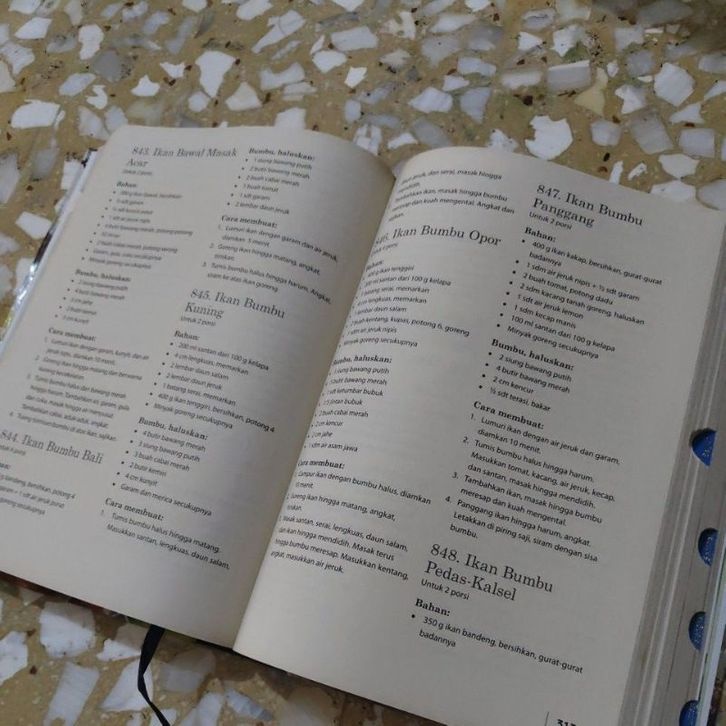 843. Ikan Bawal Masak
Acar
Bahan:
Bumbu, haluskan:
• 2 siung bawang putih
• 4 butir bawang merah
• 2 cm jahe
• 2 butir kemiri
• 3 cm kunyit
Cara membuat:
1. Lumuri ikan dengan garam, kunyit, dan air
jeruk nipis, diamkan 10 menit.
2. Goreng ikan hingga matang dan berwarna
kuning kecokelatan.
3. Tumis bumbu halus dan bawang merah
hingga harum. Tambahkan air, garam, gula
dan cuka, masak hingga air menyusut.
Tambahkan cabai, aduk-aduk, angkat.
844. Ikan Bumbu Bali
Bumbu, haluskan:
• 1 siung bawang putih
• 2 butir bawang merah
• 2 buah cabai merah
• 1 butir kemiri
• 2 lembar daun jeruk
Cara membuat:
1. Lumuri ikan dengan garam dan air jeruk,
diamkan 5 menit.
2. Goreng ikan hingga matang, angkat,
tiriskan.
3. Tumis bumbu halus hingga harum. Angkat,
siram ke atas ikan goreng.
845. Ikan Bumbu
Kuning
Untuk 2 porsi
Bahan:
• 200 ml santan dari 100 g kelapa
• 4 cm lengkuas, memarkan
• 2 lembar daun salam
• 2 lembar daun jeruk
• 1 batang serai, memarkan
• 400 g ikan tenggiri, bersihkan, potong 4
• Minyak goreng secukupnya
Bumbu, haluskan:
• 4 butir bawang merah
• 3 siung bawang putih
• 3 buah cabai merah
• 2 butir kemiri
• 4 cm kunyit
• Garam dan merica secukupnya
Cara membuat:
1. Tumis bumbu halus hingga matang.
Masukkan santan, lengkuas, daun salam,
daun jeruk, dan serai, masak hingga
mendidih.
Tambahkan ikan, masak hingga bumbu
meresap dan kuah mengental. Angkat dan
sajikan.
846. Ikan Bumbu Opor
400 g ikan tenggiri
200 ml santan dari 100 g kelapa
1 batang serai, memarkan
cm lengkuas, memarkan
lembar daun salam
2 buah kentang, kupas, potong 6, goreng
sdm air jeruk nipis
Minyak goreng secukupnya
Bumbu, haluskan:
siung bawang putih
butir bawang merah
sdt ketumbar bubuk
jintan bubuk
2 buah cabai merah
2 cm kencur
2 cm jahe
sdm air asam jawa
Cara membuat:
1. Lumuri ikan dengan bumbu halus, diamkan
10 menit.
2. Goreng ikan hingga matang, angkat,
tiriskan.
3. Masak santan, serai, lengkuas, daun salam,
dan ikan hingga mendidih. Masak terus
hingga bumbu meresap. Masukkan kentang,
angkat, masukkan air jeruk.
847. Ikan Bumbu
Panggang
Untuk 2 porsi
Bahan:
• 400 g ikan kakap, bersihkan, gurat-gurat
badannya
• 1 sdm air jeruk nipis + ½ sdt garam
• 2 buah tomat, potong dadu
• 2 sdm kacang tanah goreng, haluskan
• 1 sdt air jeruk lemon
• 1 sdm kecap manis
• 100 ml santan dari 100 g kelapa
• Minyak goreng secukupnya
Bumbu, haluskan:
• 2 siung bawang putih
• 4 butir bawang merah
• 2 cm kencur
• ½ sdt terasi, bakar
Cara membuat:
1. Lumuri ikan dengan air jeruk dan garam,
diamkan 10 menit.
2. Tumis bumbu halus hingga harum.
Masukkan tomat, kacang, air jeruk, kecap,
dan santan, masak hingga mendidih.
3. Tambahkan ikan, masak hingga bumbu
meresap dan kuah mengental.
4. Panggang ikan hingga harum, angkat.
Letakkan di piring saji, siram dengan sisa
bumbu.
848. Ikan Bumbu
Pedas-Kalsel
Untuk 2 porsi
Bahan:
• 350 g ikan bandeng, bersihkan, gurat-gurat
badannya